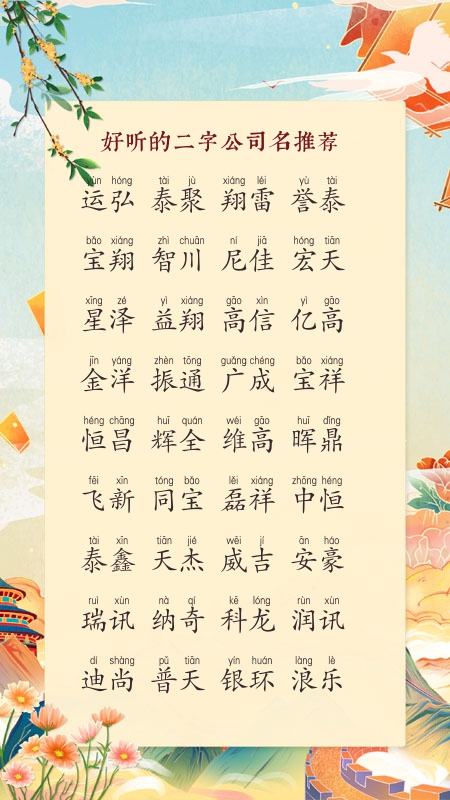 好听的二字公司名推荐
yùn hóng tài jù xiáng léi yù tài
运弘 泰聚 翔雷 誉泰
bǎo xiáng zhì chuān ní jiā hóng tiān
宝翔 智川 尼佳 宏天
xīng zé yì xiáng gāo xìn yì gāo
星泽 益翔 高信 亿高
jīn yáng zhèn tōng guǎng chéng bǎo xiáng
金洋 振通 广成 宝祥
héng chāng huī quán wéi gāo huī dǐng
恒昌 辉全 维高 晖鼎
fēi xīn tóng bǎo lěi xiáng zhōng héng
飞新 同宝 磊祥 中恒
tài xīn tiān jié wēi jí ān háo
泰鑫 天杰 威吉 安豪
ruì xùn nà qí kē lóng rùn xùn
瑞讯 纳奇 科龙 润讯
dí shàng pǔ tiān yín huán làng lè
迪尚 普天 银环 浪乐